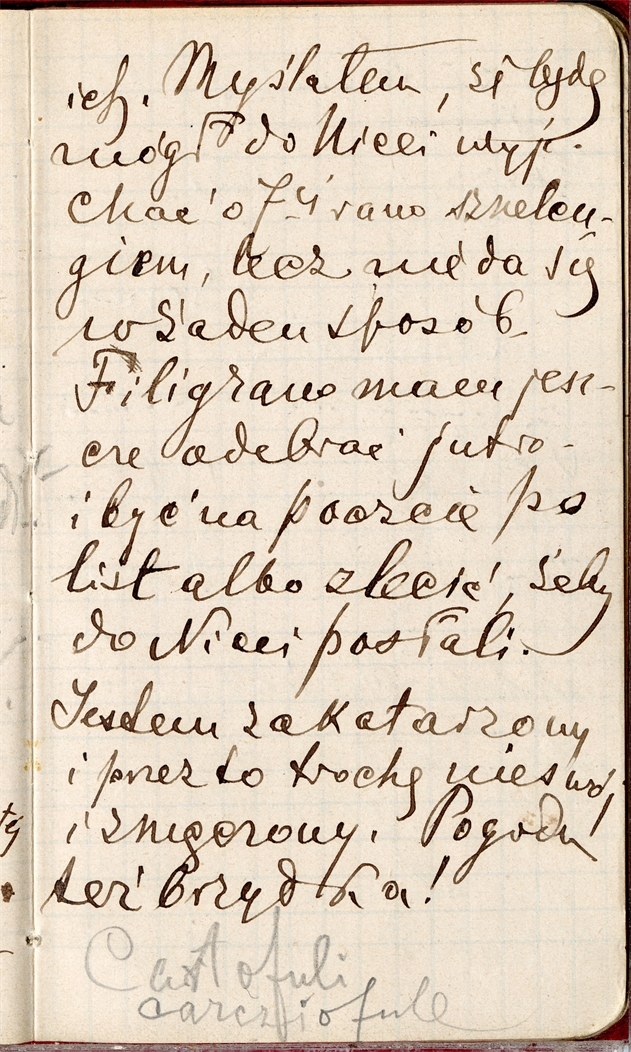 ich. Myślałem, że będę
mógł do Nicei wyje-
chać o 7-ej rano sznelcu-
giem, lecz nie da się
w żaden sposób.
Filigrano mam jesz-
cze odebrać jutro
i być na poczcie po
list albo zlecić, żeby
do Nicei posłali.
Jestem zakatarzony
i przez to trochę nieswój
i zmęczony. Pogoda
też brzydka!